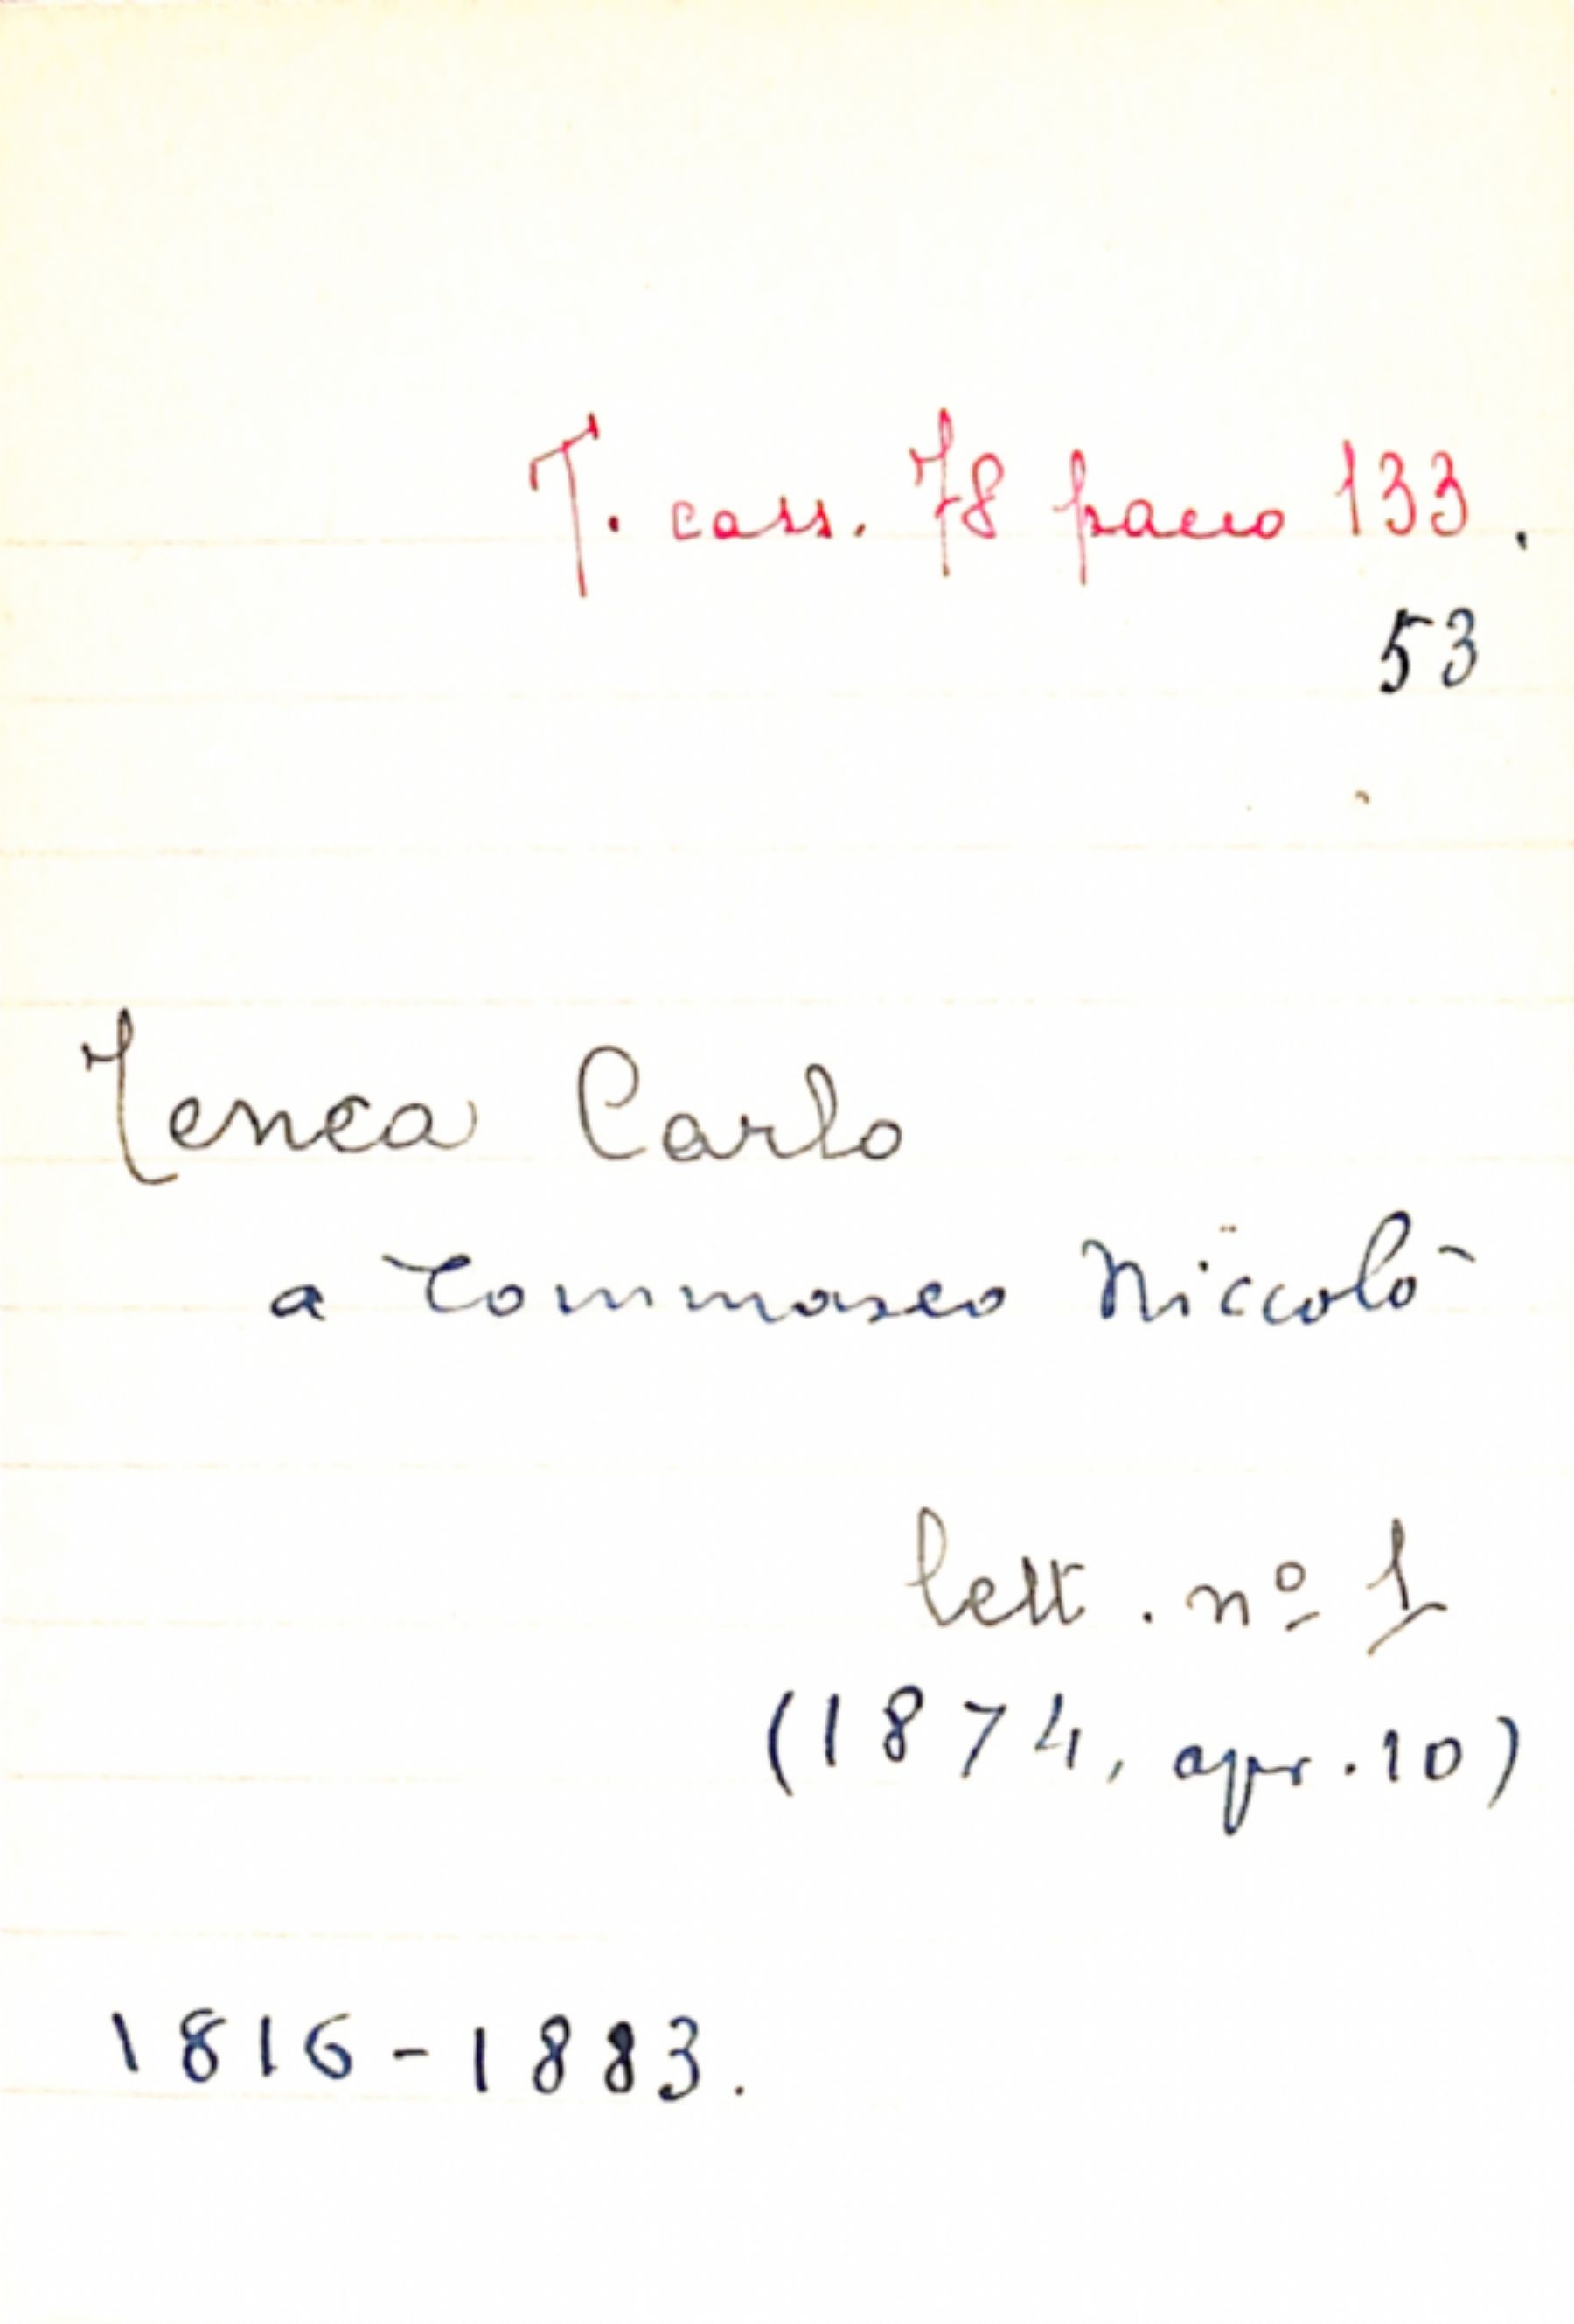 T. cass. 78 pacco 133.
53
Tenca Carlo
a Tommaseo Niccolò
lett. nº 1
(1874, apr. 10)
1816-1883.